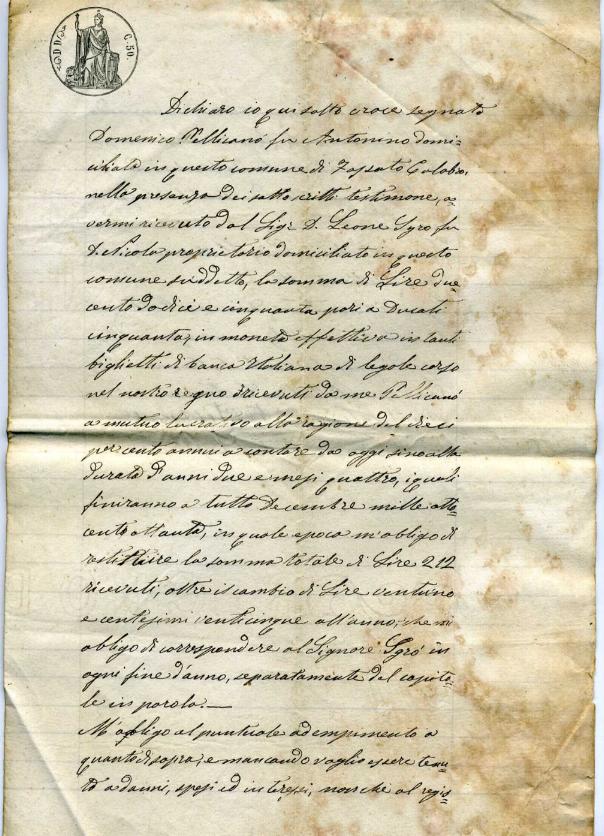 C. 50.
Dichiaro io qui sotto croce segnato
Domenico Pellicanò fu Antonino domi=
ciliato in questo comune di Calabro,
nella presenza dei sotto scritti testimone, a=
vermi ricevuto dal Sigr. D. Leone Sgrò fu
D. Nicola proprietario domiciliato in questo
comune suddetto, la somma di Lire due=
cento dodici e cinquanta pari a Ducati
cinquanta, in moneta effettiva in tanti
biglietti di banca Italiana di legale corso
nel nostro regno ricevuti da me Pellicanò
a mutuo lucrativo alla ragione del dieci
per cento annui a contare da oggi sino alla
durata d'anni due e mesi quattro, i quali
finiranno a tutto Decembre mille otto
cento ottanta, in quale epoca m'obligo di
restituire la somma totale di Lire 212
ricevuti, oltre il cambio di Lire ventuno
e centesimi venticinque all'anno, che mi
obligo di correspondere al Signore Sgrò in
ogni fine d'anno, separatamente del capita=
le in parola.—
M'obligo al puntuale adempimento a
quanto di sopra, e mancando voglio essere tenu=
to a danni, spesi ed interessi, nonchè al regis=